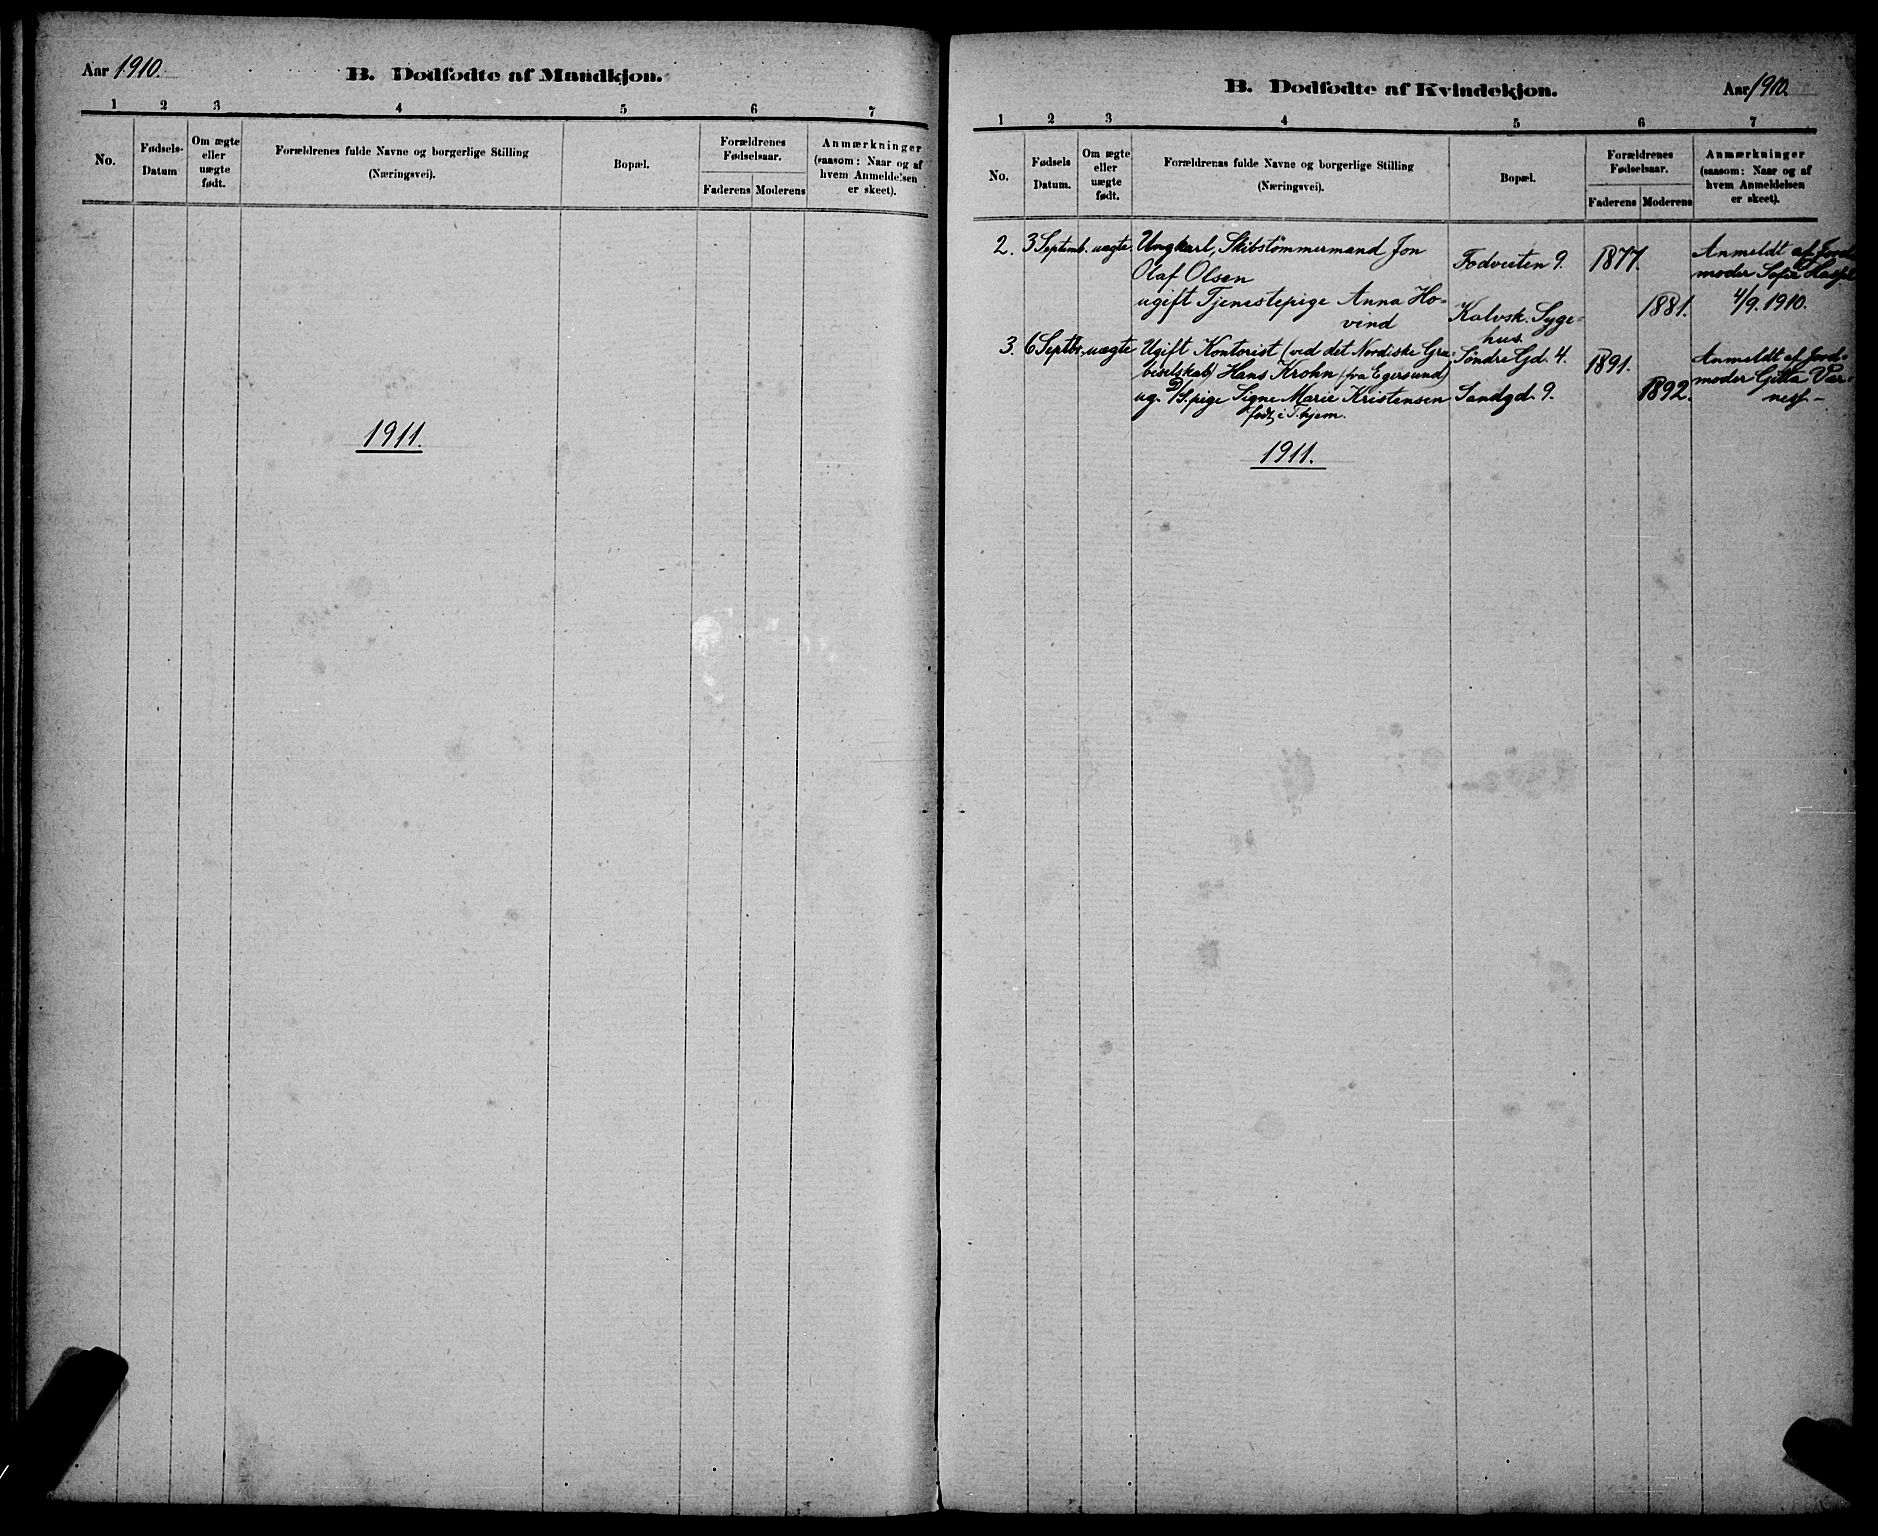 Aar 1910.
B. Dødfødte af Mandkjøn.
1 2 3 4 5 6 7
No.
Fødsels-
Datum
Om ægte
eller
uægte
født.
Forældrenes fulde Navne og borgerlige Stilling
(Næringsvei).
Bopæl.
Forældrenes
Fødselsaar.
Faderens Moderens
Anmærkninger
(saasom: Naar og af
hvem Anmeldelsen
er skeet).
1911.
B. Dødfødte af Kvindekjøn.
Aar 1910.
1 2 3 4 5 6 7
No.
Fødsels
Datum.
Om ægte
eller
uægte
født.
Forældrenes fulde Navne og borgerlige Stilling
(Næringsvei).
Bopæl.
Forældrenes
Fødselsaar.
Faderens Moderens
Anmærkninger
(saasom: Naar og af
hvem Anmeldelsen
er skeet).
2. 3 Septemb. uægte Ungkarl, Skibstømmermand Jon
Olaf Olsen
ugift Tjenestepige Anna Ho-
vind
9. 1877.
Kalvsk. Syge-
hus.
1881.
Anmeldt af Jord-
moder Sofie
4/9. 1910.
3. 6 Septbr. uægte Ugift Kontorist (ved det Nordiske Gru-
beselskab) Hans Krohn (fra Egersund)
ug. pige Signe Marie Kristensen
født i T.hjem.
Søndre Gd. 4. 1891.
Sandgd. 9. 1892.
Anmeldt af Jord-
moder Gitta
1911.